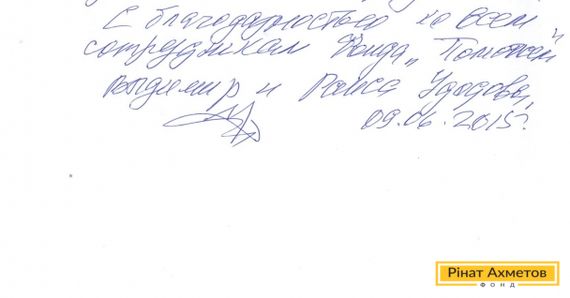 С благодарностью ко всем
сотрудникам Фонда „Поможем"
Владимир и Раиса Удодовы
09.06.2015г.
Рінат Ахметов
ФОНД